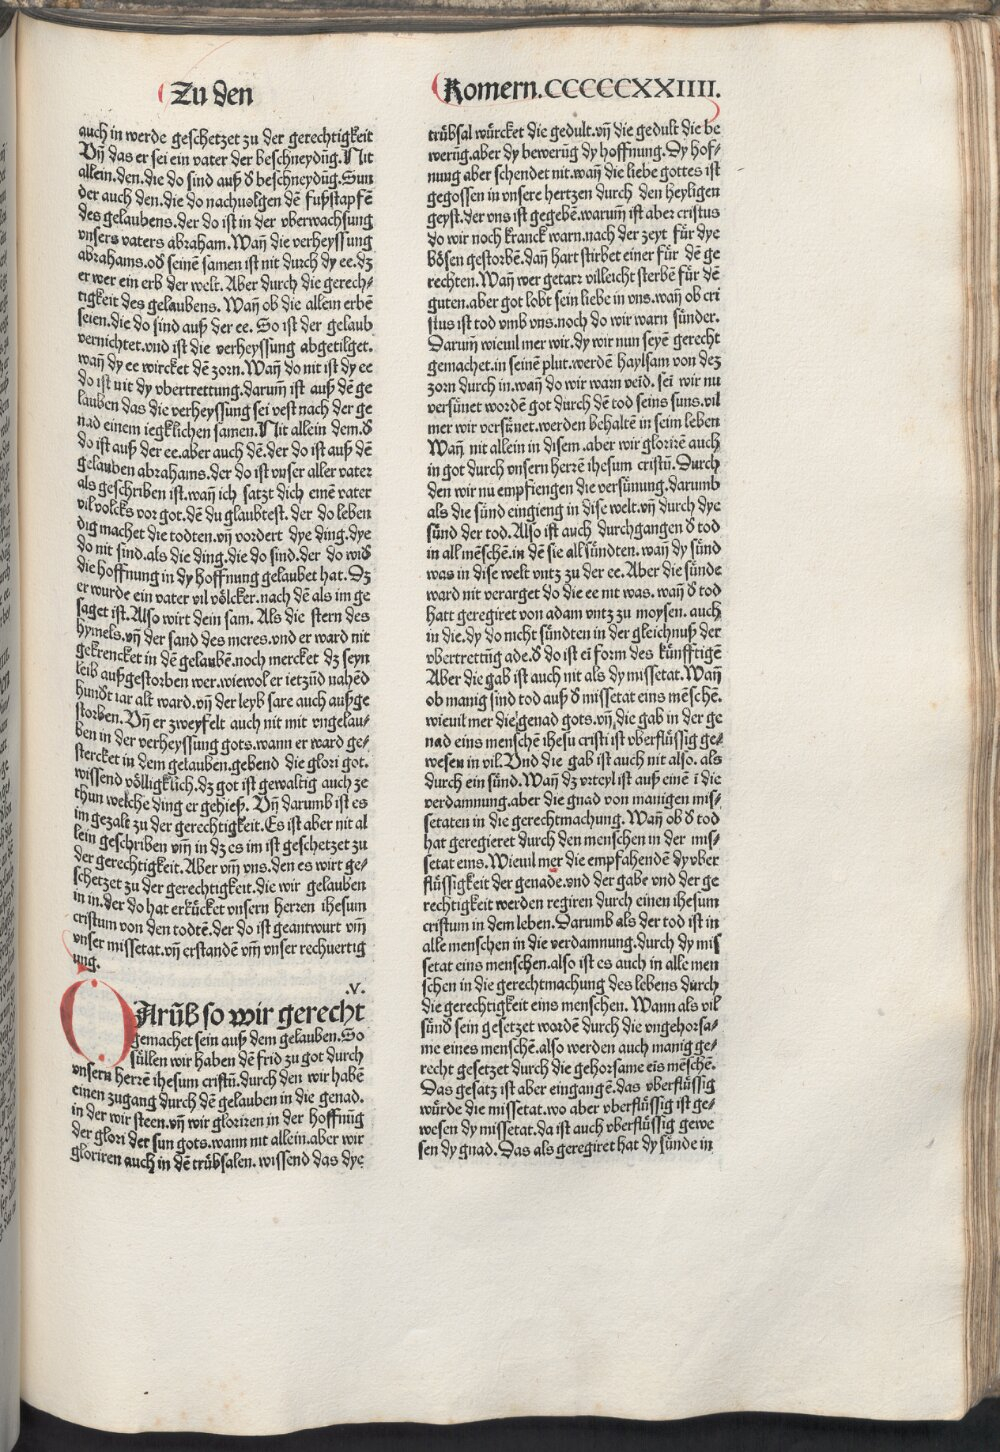 Zu den
Romern. CCCCCXXIIII.
auch in werde geschetzet zu der gerechtigkeit
Vn̄ das er sei ein vater der beschneydūg. Nit
allein. den. die do sind auß d̕ beschneydūg. Sun
der auch den. die do nachuolgen dē fußstapfē
des gelaubens. der do ist in der vberwachsung
vnsers vaters abraham. Wan̄ die verheyssung
abrahams. od̕ seinē samen ist nit durch dy ee. dz
er wer ein erb der welt. Aber durch die gerech⸗
tigkeit des gelaubens. Wan̄ ob die allein erbē
seien. die do sind auß der ee. So ist der gelaub
vernichtet. vnd ist die verheyssung abgetilget.
wan̄ dy ee wircket dē zorn. Wan̄ do nit ist dy ee
do ist nit dy vbertrettung. darum̄ ist auß dē ge
lauben das die verheyssung sei vest nach der ge
nad einem iegklichen samen. Nit allein dem. d̕
do ist auß der ee. aber auch dē. der do ist auß dē
gelauben abrahams. der do ist vnser aller vater
als geschriben ist. wan̄ ich satzt dich einē vater
vil volcks vor got. dē du glaubtest. der do leben
dig machet die todten. vn̄ vordert dye ding. dye
do nit sind. als die ding. die do sind. der do wid̕
die hoffnung in dy hoffnung gelaubet hat. Dz
er wurde ein vater vil völcker. nach dē als im ge
saget ist. Also wirt dein sam. Als die stern des
hymels. vn̄ der sand des meres. vnd er ward nit
gekrencket in dē gelaubē. noch mercket dz seyn
leib außgestorben wer. wiewol er ietzūd nahēd
hundt iar alt ward. vn̄ der leyb sare auch außge
storben. Vn̄ er zweyfelt auch nit mit vngelau⸗
ben in der verheyssung gots. wann er ward ge⸗
stercket in dem gelauben. gebend die glori got.
wissend völligklich. dz got ist gewaltig auch ze
thun welche ding er gehieß. Vn̄ darumb ist es
im gezalt zu der gerechtigkeit. Es ist aber nit al
lein geschriben vm̄ in dz es im ist geschetzet zu
der gerechtigkeit. Aber vm̄ vns. den es wirt ge⸗
schetzet zu der gerechtigkeit. die wir gelauben
in in. der do hat erkücket vnsern herren ihesum
cristum von den todtē. der do ist geantwurt vm̄
vnser missetat. vn̄ erstandē vm̄ vnser rechuertig
ung.
.V.
DArūb so wir gerecht
gemachet sein auß dem gelauben. So
süllen wir haben dē frid zu got durch
vnsern herrē ihesum cristū. durch den wir habē
einen zugang durch dē gelauben in die genad.
in der wir steen. vn̄ wir gloriren in der hoffnūg
der glori der sun gots. wann nit allein. aber wir
gloriren auch in dē trübsalen. wissend das dye
trübsal würcket die gedult. vn̄ die gedult die be
werūg. aber dy bewerūg dy hoffnung. Dy hof⸗
nung aber schendet nit. wan̄ die liebe gottes ist
gegossen in vnsere hertzen durch den heyligen
geyst. der vns ist gegebē. warum̄ ist aber cristus
do wir noch kranck warn. nach der zeyt für dye
bösen gestorbē. dan̄ hart stirbet einer für dē ge
rechten. Wan̄ wer getarr villeicht sterbē für dē
guten. aber got lobt sein liebe in vns. wan̄ ob cri
stus ist tod vmb vns. noch do wir warn sünder.
Darum̄ wieuil mer wir. dy wir nun seyē gerecht
gemachet. in seinē plut. werdē haylsam von dez
zorn durch in. wan̄ do wir warn veīd. sei wir nu
versünet wordē got durch dē tod seins suns. vil
mer wir versünet. werden behaltē in seim leben
Wan̄ nit allein in disem. aber wir glorirē auch
in got durch vnsern herrē ihesum cristū. Durch
den wir nu empfiengen die versünung. darumb
als die sünd eingieng in dise welt. vn̄ durch dye
sünd der tod. Also ist auch durchgangen d̕ tod
in all mēschē. in dē sie all sündten. wan̄ dy sünd
was in dise welt vntz zu der ee. Aber die sünde
ward nit verarget do die ee nit was. wan̄ d̕ tod
hatt geregiret von adam vntz zu moysen. auch
in die. dy do nicht sündten in der gleichnuß der
vbertrettūg ade. d̕ do ist eī form des künfftigē
Aber die gab ist auch nit als dy missetat. Wan̄
ob manig sind tod auß d̕ missetat eins mēschē.
wieuil mer die genad gots. vn̄ die gab in der ge
nad eins menschē ihesu cristi ist vberflüssig ge⸗
wesen in vil. Vnd die gab ist auch nit also. als
durch ein sünd. Wan̄ dz vrteyl ist auß einē ī die
verdamnung. aber die gnad von manigen mis⸗
setaten in die gerechtmachung. Wan̄ ob d̕ tod
hat geregieret durch den menschen in der mis⸗
setat eins. Wieuil mer die empfahendē dy vber
flüssigkeit der genade. vnd der gabe vnd der ge
rechtigkeit werden regiren durch einen ihesum
cristum in dem leben. Darumb als der tod ist in
alle menschen in die verdamnung. durch dy mis
setat eins menschen. also ist es auch in alle men
schen in die gerechtmachung des lebens durch
die gerechtigkeit eins menschen. Wann als vil
sünd̕ sein gesetzet wordē durch die vngehorsa⸗
me eines menschē. also werden auch manig ge⸗
recht gesetzet durch die gehorsame eīs mēschē.
Das gesatz ist aber eingangē. das vberflüssig
würde die missetat. wo aber vberflüssig ist ge⸗
wesen dy missetat. da ist auch vberflüssig gewe
sen dy gnad. Das als geregiret hat dy sünde in